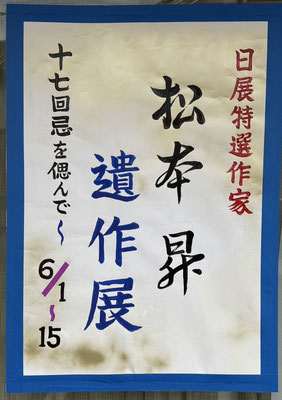 日展特選作家
松本昇
遺作展
十七回忌を偲んで〜
6/1〜15